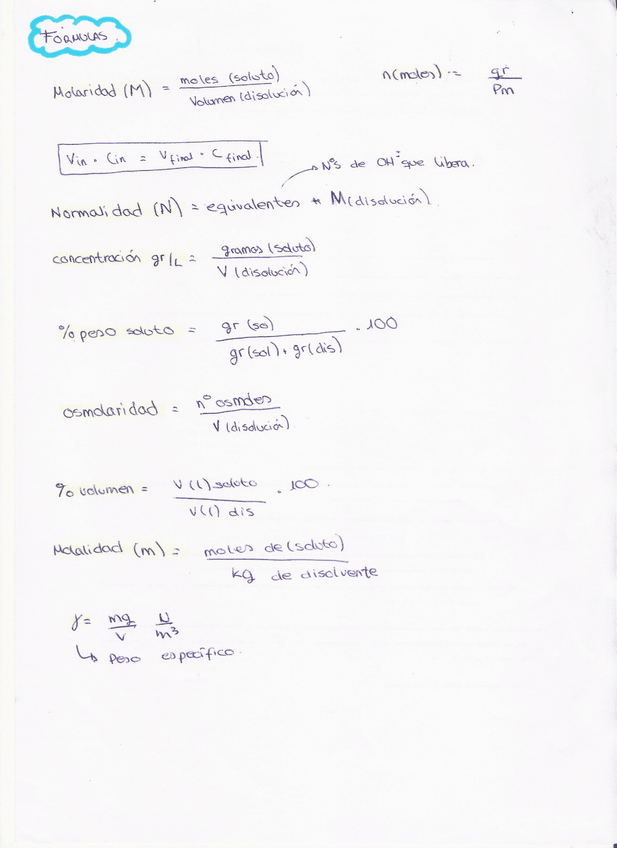 FÓRMULAS
Molaridad (M) = moles (soluto) / Volumen (disolución)
n(moles) = gr / Pm
Vin · Cin = Vfinal · Cfinal
Nºs de OH⁻ que libera.
Normalidad (N) = equivalentes * M(disolución)
concentración gr/L = gramos (soluto) / V (disolución)
% peso soluto = gr (sol) / gr(sol) + gr(dis) · 100
osmolaridad = nº osmoles / V (disolución)
% volumen = V(l) soluto / V(l) dis · 100.
Molalidad (m) = moles de (soluto) / kg de disolvente
γ = mg / V N / m³
↳ Peso específico.